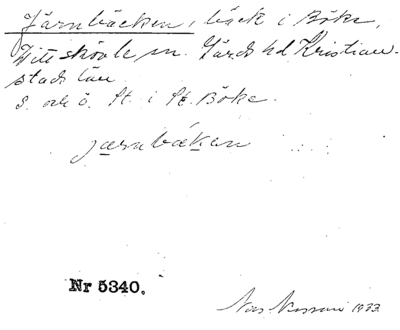 Järnbäcken, bäck i Böke,
Vittskövle sn. Gärds hd Kristian-
stads län.
S. och ö. St. i St. Böke.
jærnbækan
Nr 5340.
Nils Nilsson 1933